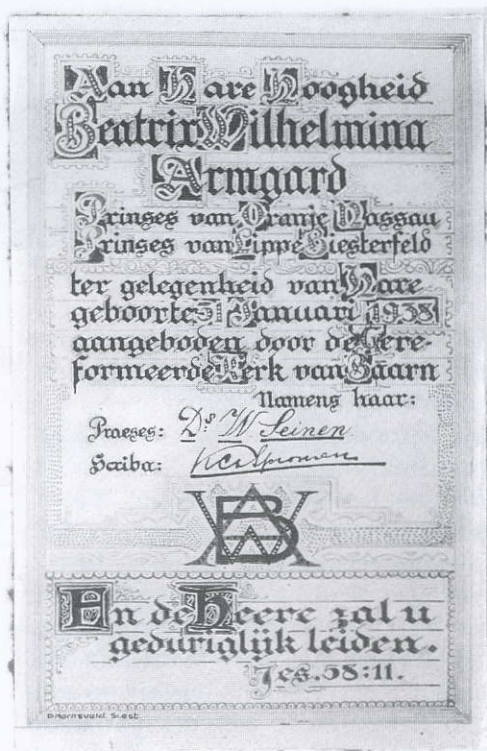 Aan Hare Hoogheid
Beatrix Wilhelmina
Armgard
Prinses van Oranje Nassau
Prinses van Lippe Biesterfeld
ter gelegenheid van Hare
geboorte 31 Januari 1938
aangeboden door de Gere-
formeerde Kerk van Baarn
Namens haar:
Praeses: Ds W Seinen
Scriba:
BWA
En de Heere zal u
geduriglijk leiden.
Jes. 58:11.